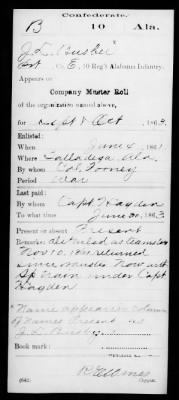 Confederate.
B 10 Ala.
J. L. Busbee
Co. E, 10 Reg't Alabama Infantry.
Appears on
Company Muster Roll
of the organization named above,
for Sept & Oct, 1863.
Enlisted:
When June 4, 1861
Where Talladega Ala
By whom Col. Forney
Period War
Last paid:
By whom Capt. Hagden
To what time June 30, 1863
Present or absent Present
Remarks: detailed as teamster
Nov 10, 1861 returned
since muster Now with
Sp train under Capt
Hagden
"Name appears in column
of Names Present as
J. L.
Book mark:
(642) Copyist.